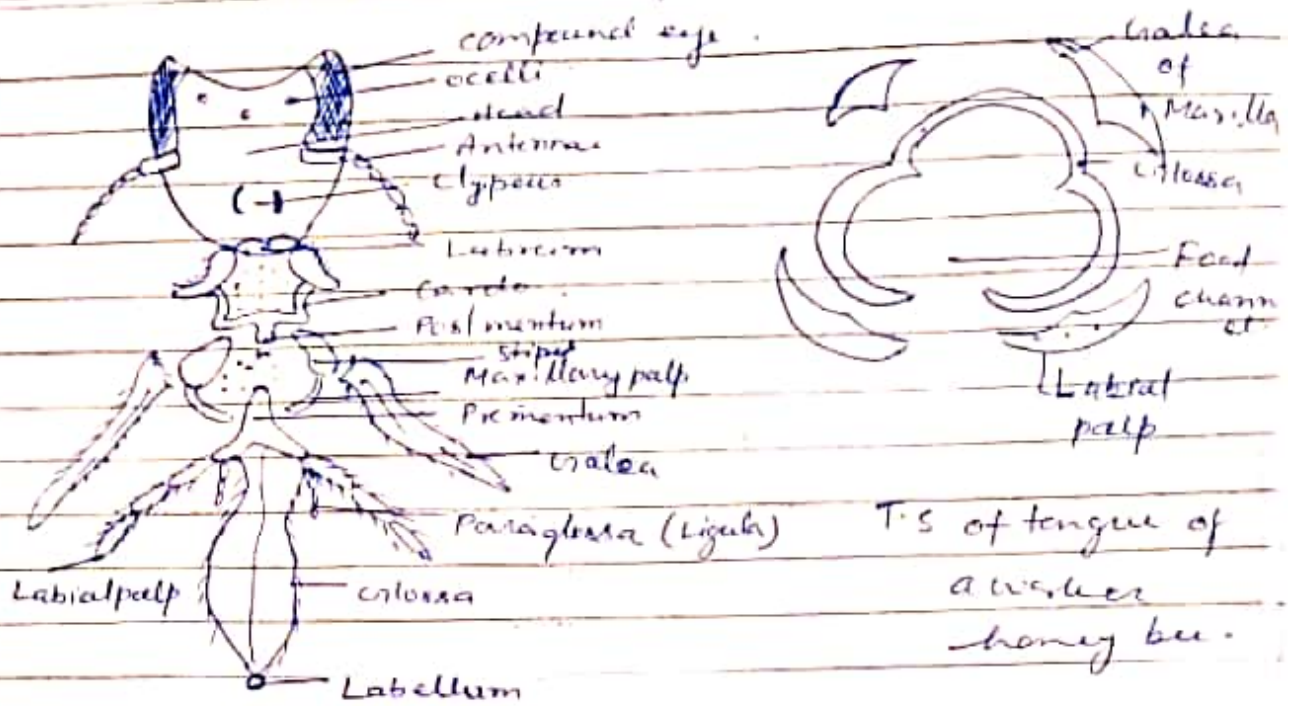 compound eye.
ocelli
Head
Antennae
Clypeus
Labreum
Cardo.
Postmentum
stiped
Maxillary palp
Prementum
Galea
Paraglossa (Ligula)
Labialpalp
Glossa
Labellum
Galea
of
Maxilla
Glossa
Food
chann
el.
Labial
palp
T.S of tongue of
a worker
honey bee.